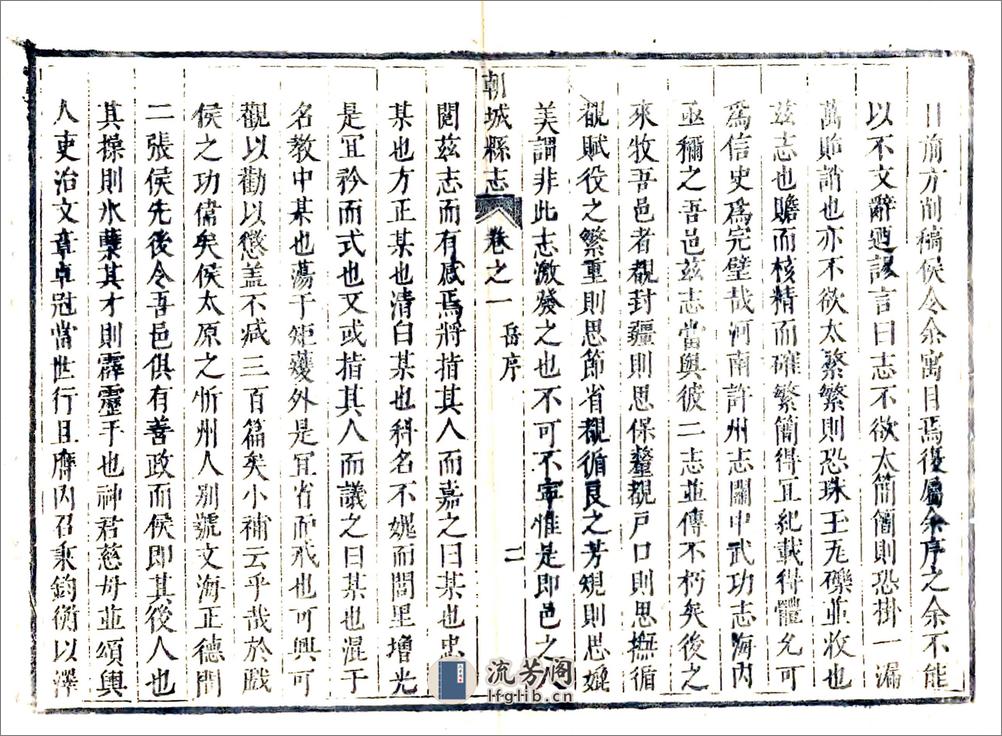 日前方削稿侯令余寓目焉復屬余序之余不能
以不文辭廼諼言曰志不欲太簡簡則恐掛一漏
萬貽誚也亦不欲太繁繁則恐珠玉瓦礫並收也
茲志也贍而核精而確繁簡得宜紀載得體允可
為信史為完璧哉河南許州志關中武功志海內
亟稱之吾邑茲志當與彼二志並傳不朽矣後之
來牧吾邑者覩封疆則思保釐覩戶口則思撫循
覩賦役之繁重則思節省覩循良之芳規則思媲
美謂非此志激發之也不可不寧惟是即邑之人
朝城縣志 卷之一 岳序 二
閱茲志而有感焉將指其人而嘉之曰某也忠
某也方正某也清白某也科名不媿而閭里增光
是宜矜而式也又或指其人而議之曰某也混于
名教中某也蕩于矩矱外是宜省而戒也可興可
觀以勸以懲盖不减三百篇矣小補云乎哉於戲
侯之功偉矣侯太原之忻州人别號文海正德間
二張侯先後令吾邑俱有善政而侯即其後人也
其操則氷蘖其才則霹靂手也神君慈母並頌輿
人吏治文章卓冠當世行且膺內召秉鈞衡以澤
流芳阁
lfglib.cn